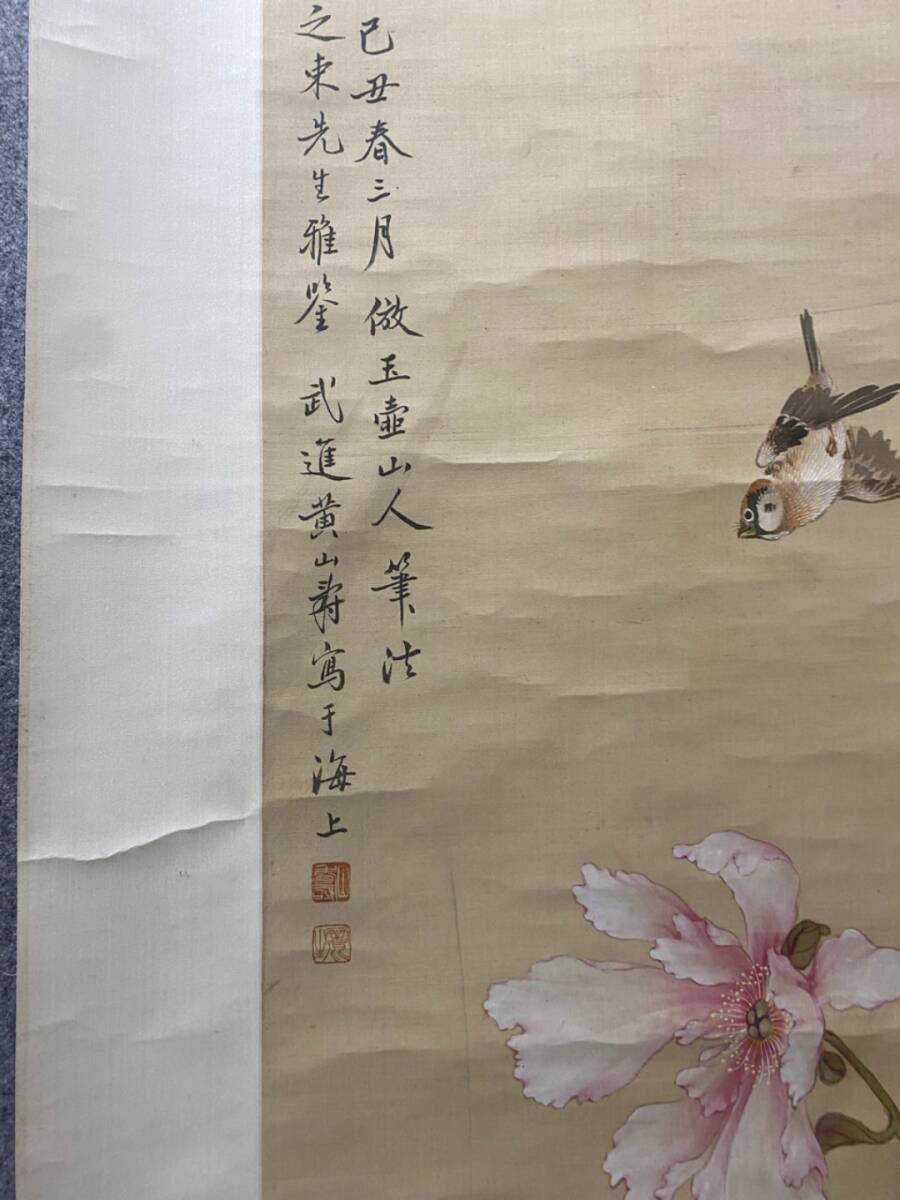 己丑春三月倣玉壺山人筆法
之東先生雅鑒 武進黄山壽寫于海上
山壽